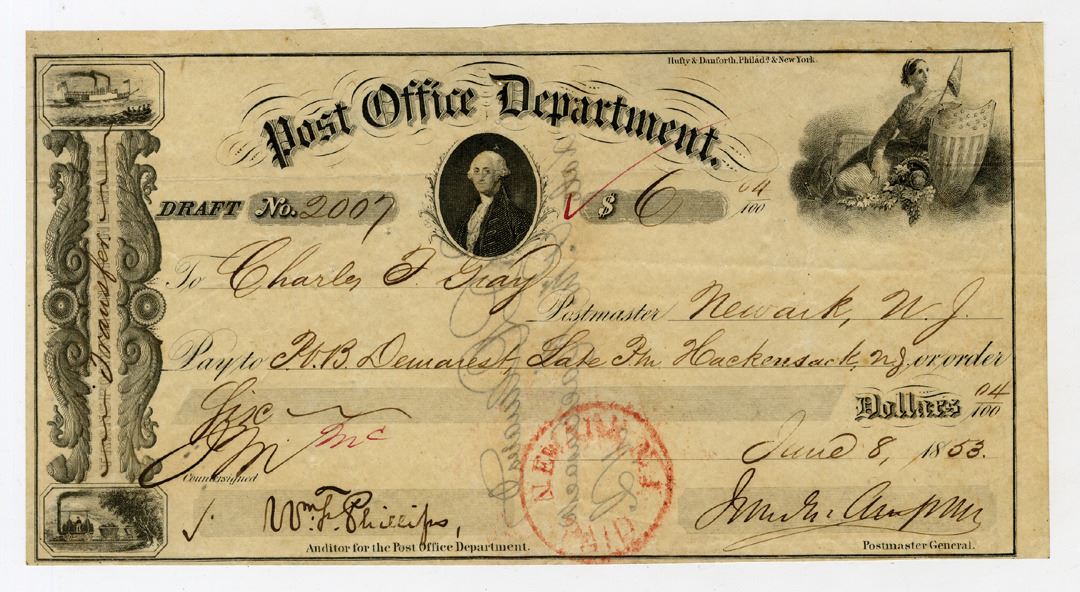 Hufty & Danforth, Philada. & New York.
Post Office Department.
DRAFT No. 2007 $ 6 04/100
Transfer
To Charles T. Gray
Postmaster Newark, N. J.
Pay to P.V.B. Demarest, Late Pm Hackensack, NJ, or order
Six Dollars 04/100
June 8, 1853.
Countersigned
Wm. F. Phillips,
Auditor for the Post Office Department. Postmaster General.
NEWARK N.J.
PAID